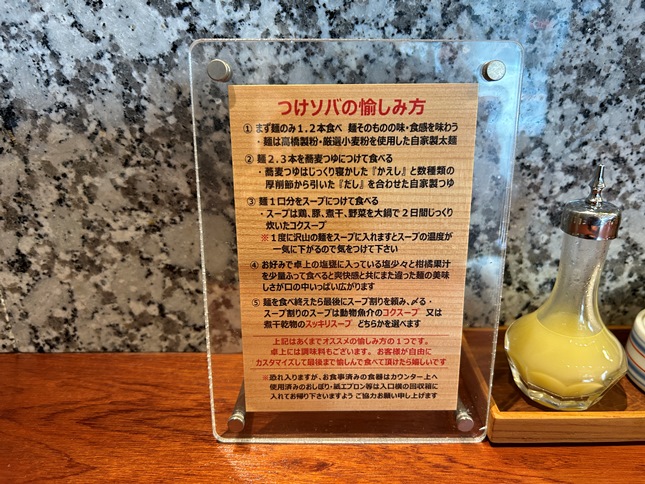 つけソバの愉しみ方
① まず麺のみ1.2本食べ 麺そのものの味・食感を味わう
・麺は高橋製粉・厳選小麦粉を使用した自家製太麺
② 麺2.3本を蕎麦つゆにつけて食べる
・蕎麦つゆはじっくり寝かした『かえし』と数種類の
厚削節から引いた『だし』を合わせた自家製つゆ
③ 麺1口分をスープにつけて食べる
・スープは鶏、豚、煮干、野菜を大鍋で2日間じっくり
炊いたコクスープ
※1度に沢山の麺をスープに入れますとスープの温度が
一気に下がるので気をつけて下さい
④ お好みで卓上の塩甕に入っている塩少々と柑橘果汁
を少量ふって食べると爽快感と共にまた違った麺の美味
しさが口の中いっぱい広がります
⑤ 麺を食べ終えたら最後にスープ割りを頼み、〆る・
スープ割りのスープは動物魚介のコクスープ 又は
煮干乾物のスッキリスープ どちらかを選べます
上記はあくまでオススメの愉しみ方の1つです。
卓上には調味料もございます。お客様が自由に
カスタマイズして最後まで愉しんで食べて頂けたら嬉しいです
※恐れ入りますが、お食事済みの食器はカウンター上へ
使用済みのおしぼり・紙エプロン等は入口横の回収箱に
入れてお帰り下さいますよう ご協力お願い申し上げます